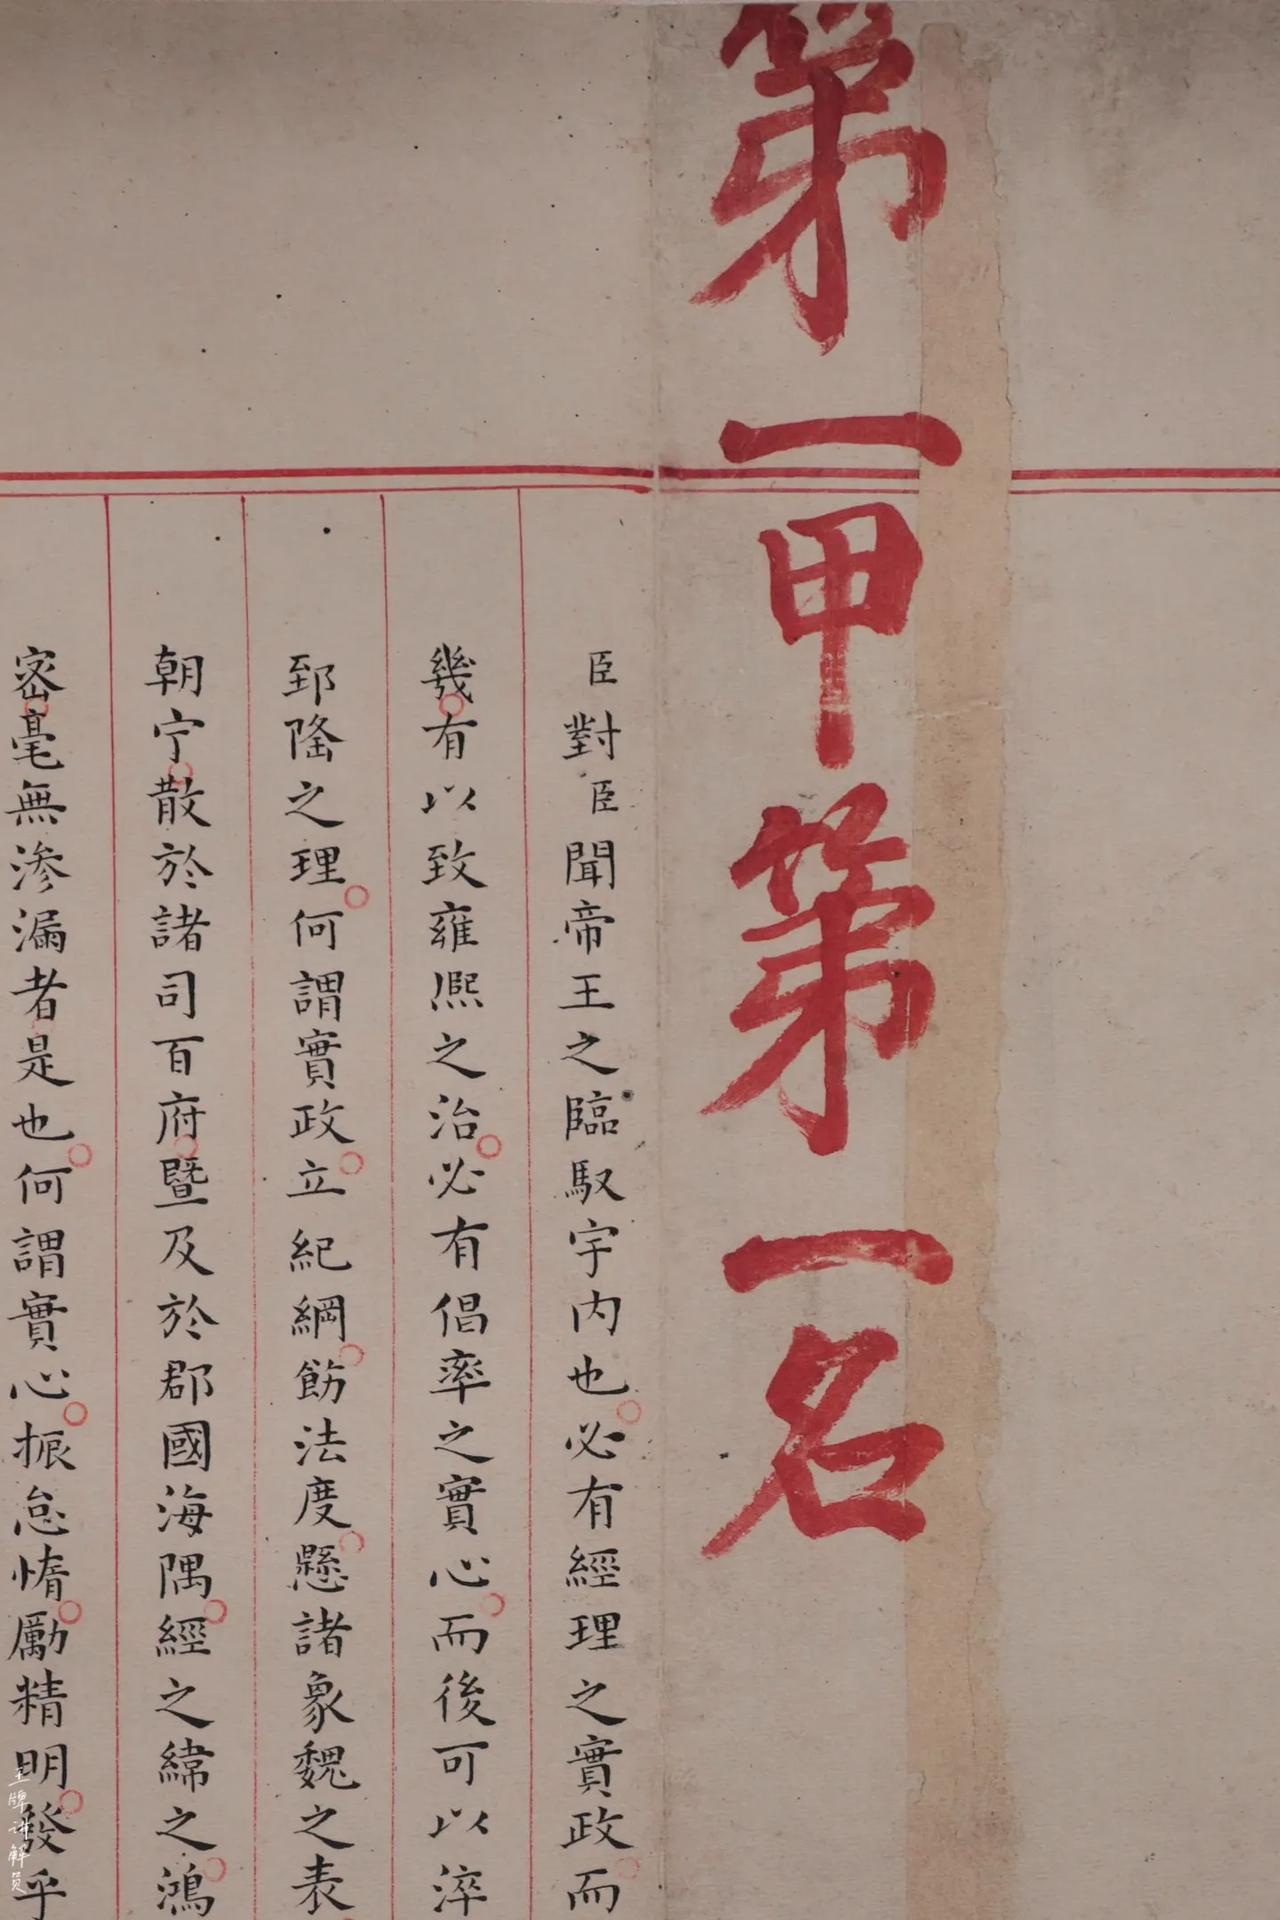 第一甲第一名
臣對臣聞帝王之臨馭宇内也必有經理之實政而
幾有以致雍熙之治必有倡率之實心而後可以淬
郅隆之理何謂實政立紀綱飭法度懸諸象魏之表
朝宁散於諸司百府暨及於郡國海隅經之緯之鴻
密毫無滲漏者是也何謂實心振怠惰勵精明發乎
王牌讲解员